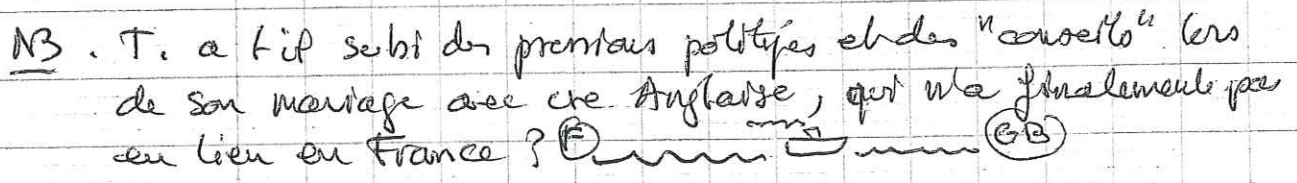 NB. T. a t-il subi des pressions politiques et des "conseils" lors
de son mariage avec une Anglaise, qui n'a finalement pas
eu lieu en France ? F GB